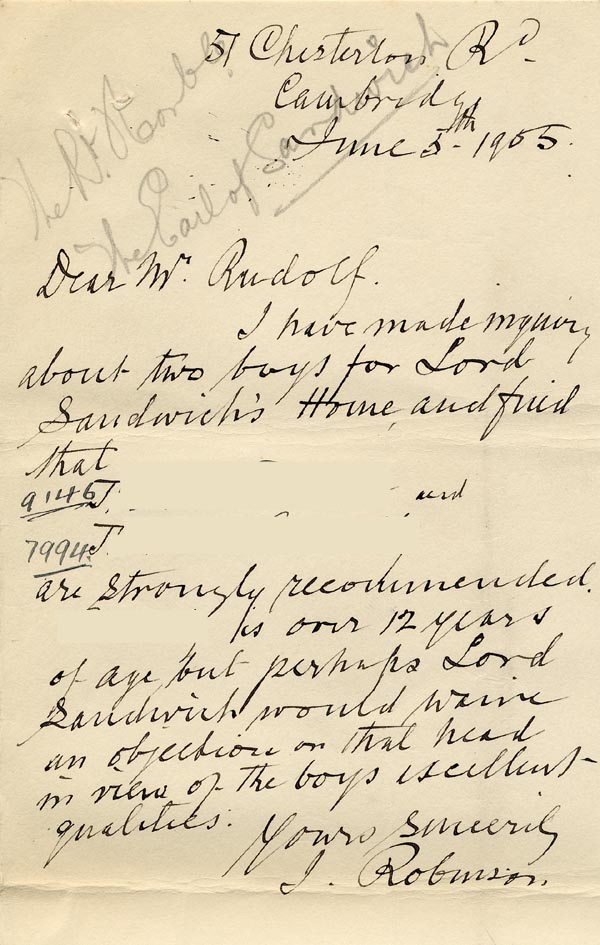 The Rt. Honble.
The Earl of Sandwich
57 Chesterton Rd.
Cambridge
June 5th 1905.
Dear Mr. Rudolf.
I have made inquiry
about two boys for Lord
Sandwich's Home, and find
that
9146 J. and
7994. J.
are strongly recommended.
is over 12 years
of age, but perhaps Lord
Sandwich would waive
an objection on that head
in view of the boys excellent
qualities.
Yours sincerely
J. Robinson.